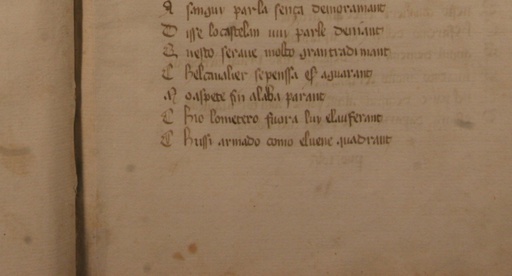 A sangur parla sença demoramant
D isse locastelan uui parle deniant
Q uesto seraue molto grantradimant
C helcaualier sepenssa es aguarant
M oaspete fin alaba parant
C hio lometero fuora luy elauferant
C hussi armado como eluene quadrant